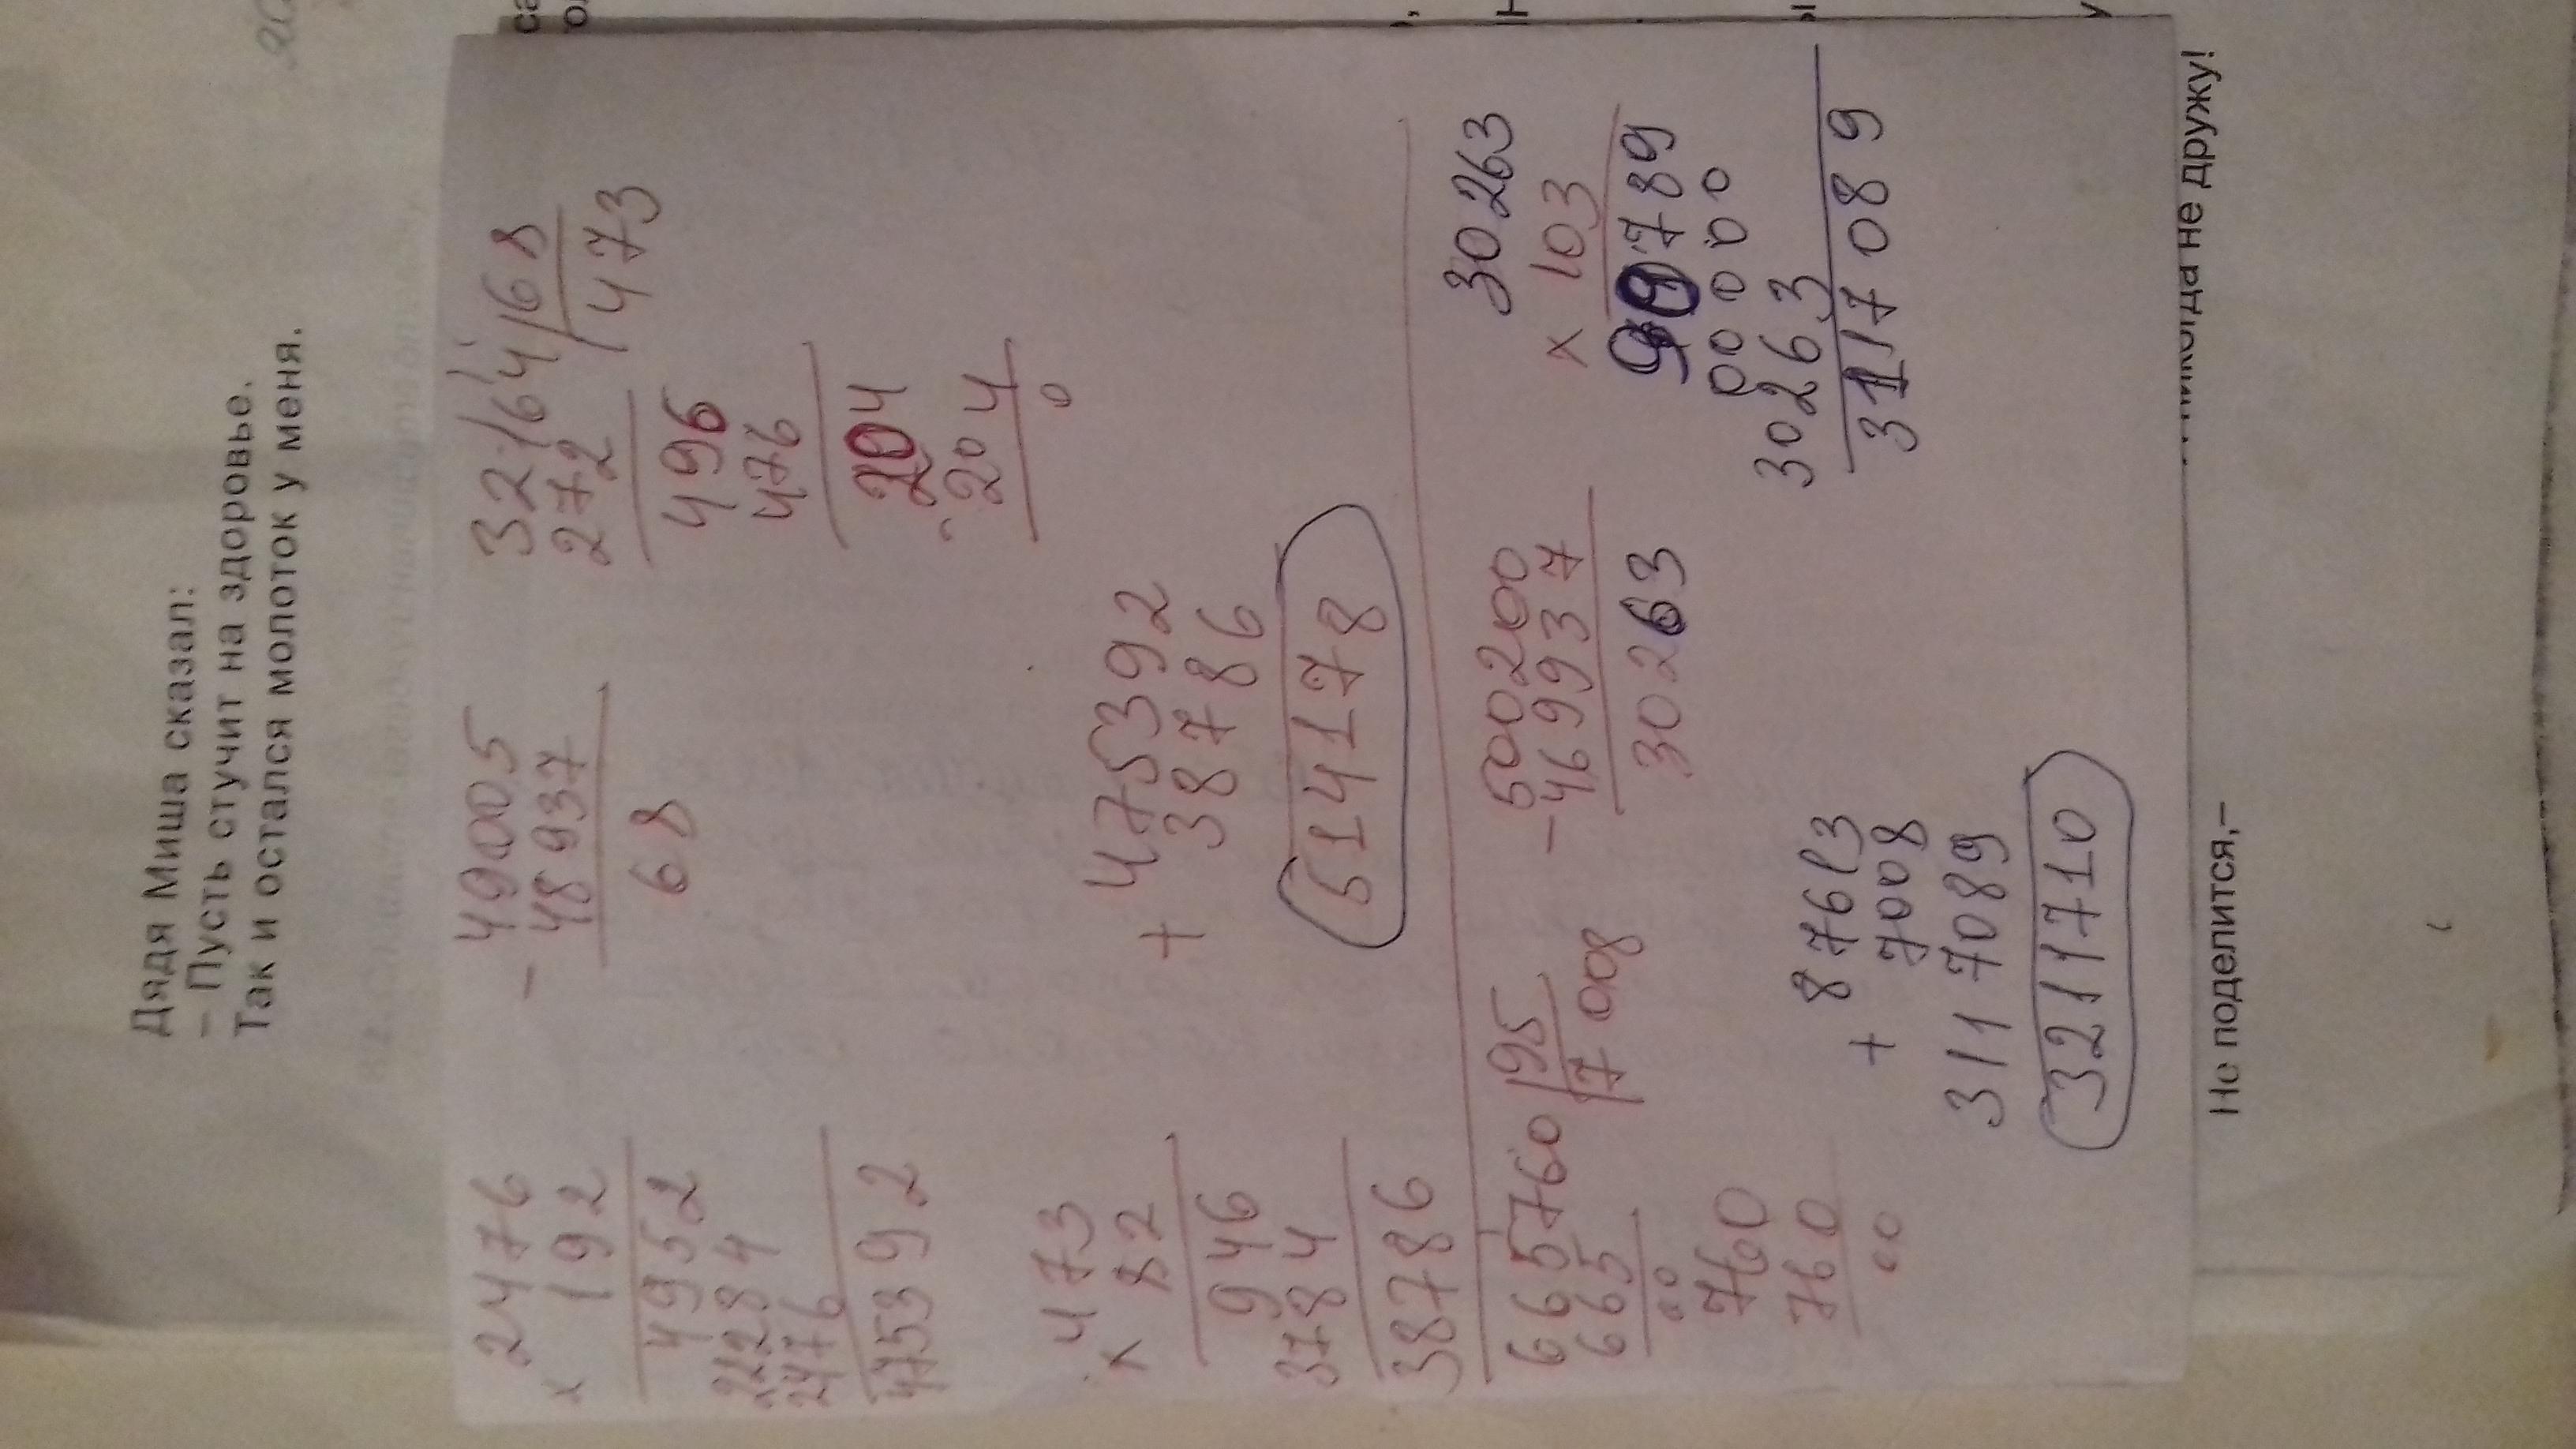 Дядя Миша сказал:
– Пусть стучит на здоровье.
Так и остался молоток у меня.
2476
× 192
4952
22284
2476
475392
- 49005
48937
68
32164 | 68
272 | 473
496
476
204
- 204
0
473
× 82
946
3784
38786
+ 475392
38786
514178
665760 | 95
665 | 7008
00
760
760
00
- 500200
469937
30263
30263
× 103
90789
00000
30263
3117089
+ 87613
7008
3117089
3211710
не дружу!
Не поделится,–